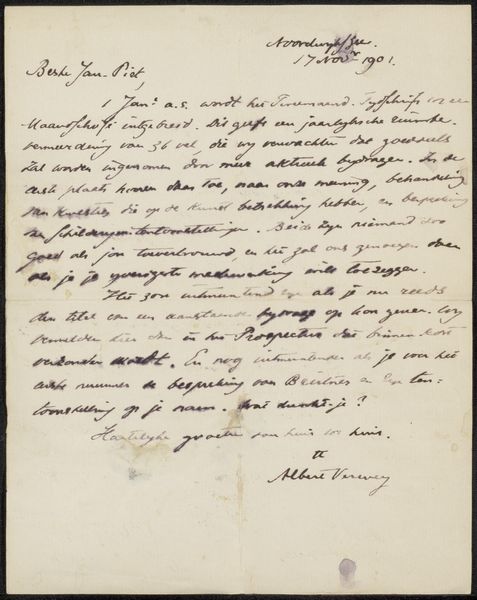 Noordwijk/Zee.
17 Novr 1901.
Beste Jan-Piet,
1 Jan. a.s. wordt het Tweemaand. Tijdschrift tot een
Maandschrift uitgebreid. Dit geeft een jaarlijksche ruimte-
vermeerdering van 36 vel, die wij verwachten dat goeddeels
zal worden ingenomen door meer aktueele bijdragen. In de
eerste plaats hooren daar toe, naar onze meening, behandeling
van kwesties die op de kunst betrekking hebben, en bespreking
van schilderijententoonstellingen. Beide zijn niemand zoo
goed als jou toevertrouwd, en het zal ons genoegen doen
als je je geregelde medewerking wilt toezeggen.
Het zou uitmuntend zijn als je nu reeds
den titel van een aanstaande bijdrage op kon geven. Wij
vermelden dien dan in het Prospectus dat binnen kort
verzonden wordt. En nog uitmuntender als je voor het
eerste nummer de bespreking van en zijn ten-
toonstelling op je nam. Wat dunkt je?
Hartelijke groeten van huis tot huis.
tt
Albert Verwey